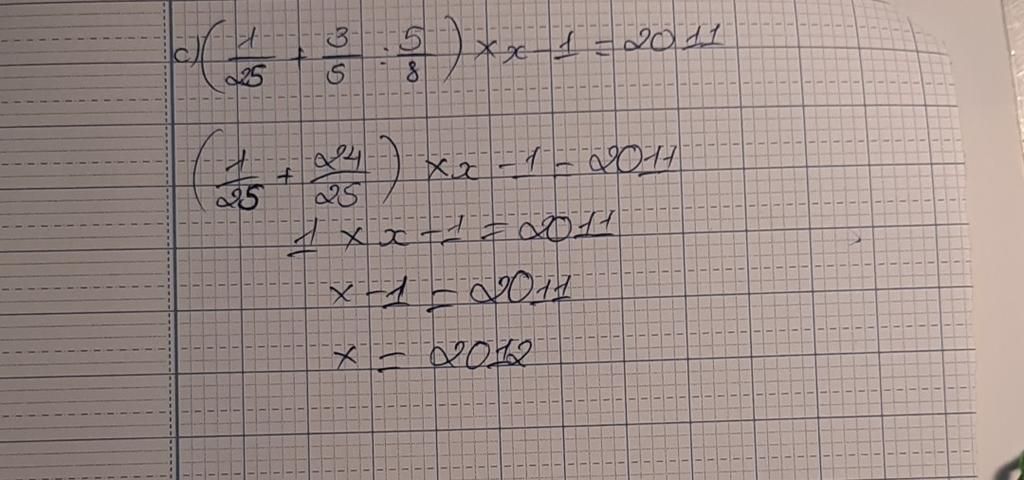 c) (1/25 + 3/5 : 5/8) × x - 1 = 2011
(1/25 + 24/25) × x - 1 = 2011
1 × x - 1 = 2011
x - 1 = 2011
x = 2012